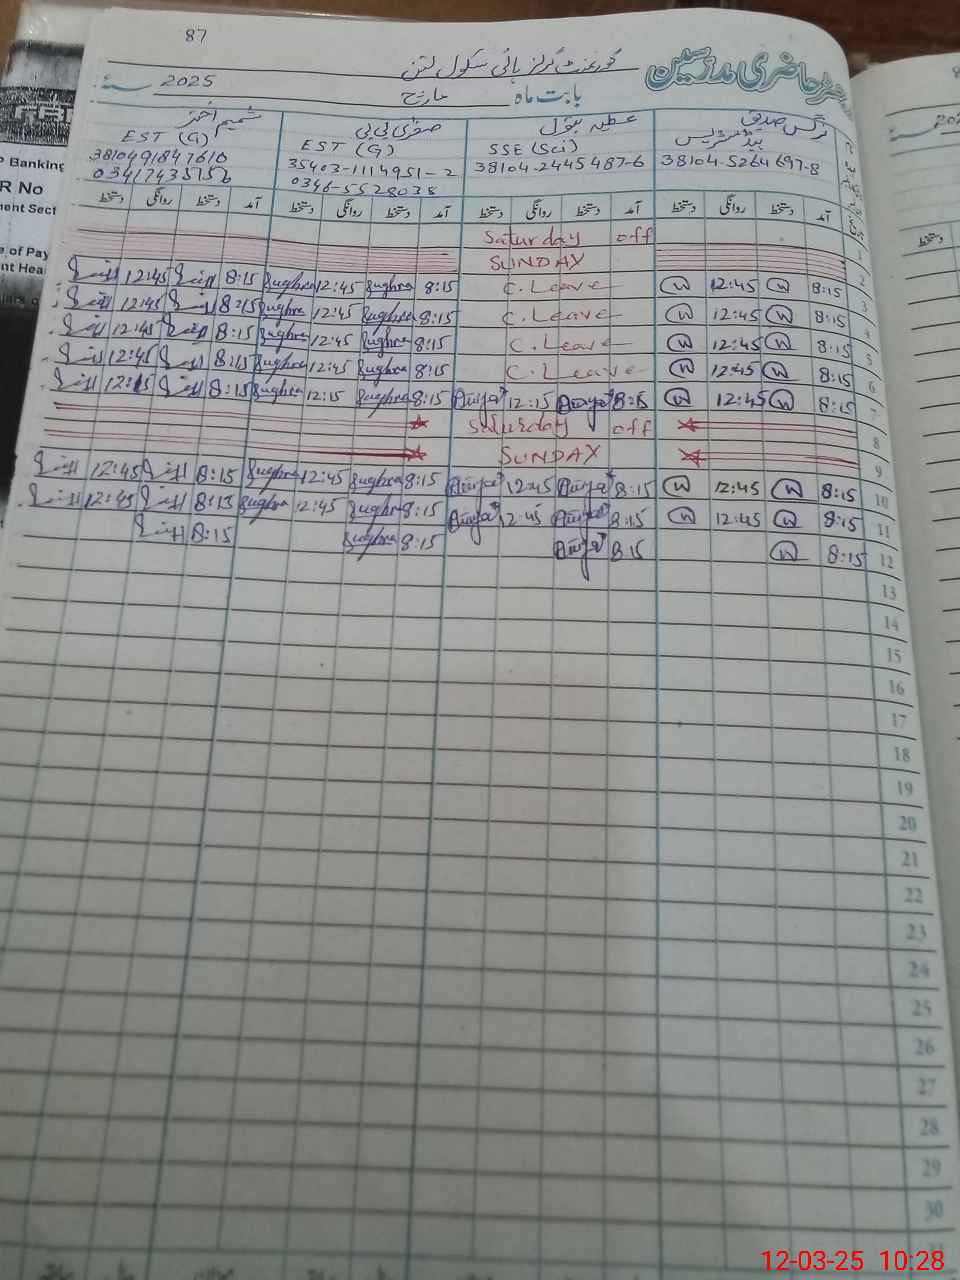 87
رجسٹر حاضری مدرسین
گورنمنٹ گرلز ہائی سکول
بابت ماہ مارچ 2025 سنہ
نرگس صدیق عطیہ بتول صغریٰ بی بی شمیم اختر
ہیڈ مسٹریس SSE (Sci) EST (G) EST (G)
38104-5264697-8 38104-2445487-6 35403-1114951-2 3810491847610
0346-5528038
آمد دستخط روانگی دستخط آمد دستخط روانگی دستخط آمد دستخط روانگی دستخط آمد دستخط روانگی دستخط
1 Saturday off
2 SUNDAY
3 8:15 12:45 C. Leave 8:15 Sughra 12:45 Sughra 8:15 12:45
4 8:15 12:45 C. Leave 8:15 Sughra 12:45 Sughra 8:15 12:45
5 8:15 12:45 C. Leave 8:15 Sughra 12:45 Sughra 8:15 12:45
6 8:15 12:45 C. Leave 8:15 Sughra 12:45 Sughra 8:15 12:45
7 8:15 12:45 8:15 12:15 8:15 Sughra 12:15 Sughra 8:15 12:15
8 Saturday off
9 SUNDAY
10 8:15 12:45 8:15 12:45 8:15 Sughra 12:45 Sughra 8:15 12:45
11 8:15 12:45 8:15 12:45 8:15 Sughra 12:45 Sughra 8:15 12:45
12 8:15 8:15 8:15 Sughra 8:15
13
14
15
16
17
18
19
20
21
22
23
24
25
26
27
28
29
30
31
P Banking
R No
ment Sect
e of Pay
nt Hea
12-03-25 10:28